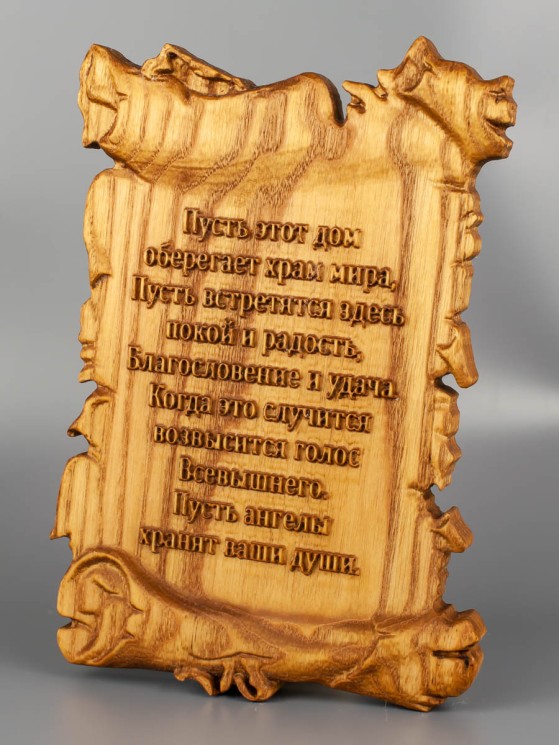 Пусть этот дом
оберегает храм мира,
Пусть встретятся здесь
покой и радость,
Благословение и удача.
Когда это случится
возвысится голос
Всевышнего.
Пусть ангелы
хранят ваши души.